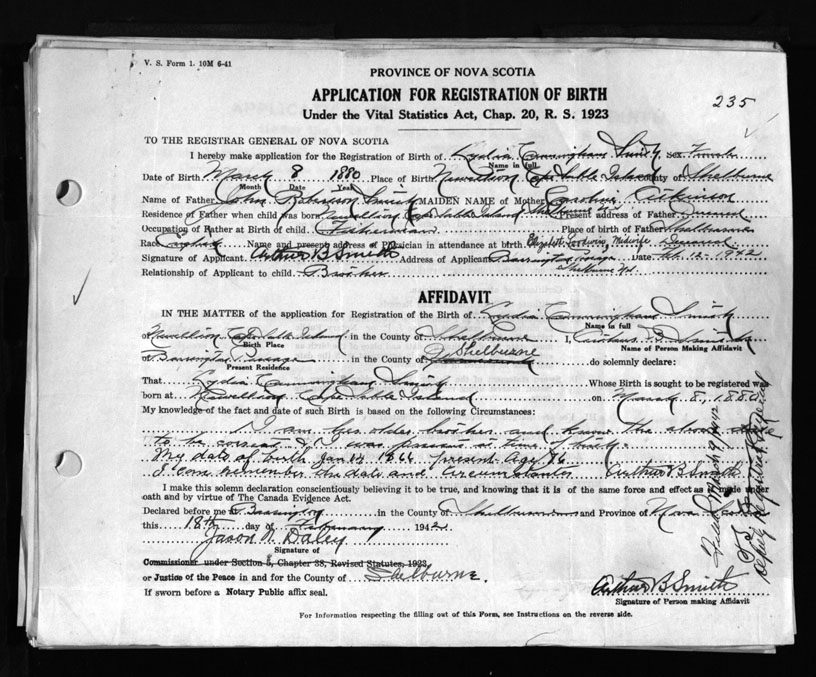 V. S. Form 1. 10M 6-41
PROVINCE OF NOVA SCOTIA
235
APPLICATION FOR REGISTRATION OF BIRTH
Under the Vital Statistics Act, Chap. 20, R. S. 1923
TO THE REGISTRAR GENERAL OF NOVA SCOTIA
I hereby make application for the Registration of Birth of Lydia Cunningham Smith Sex Female
Name in full
Date of Birth March 8 1880 Place of Birth Newellton Cape Sable Island County of Shelburne
Month Date Year
Name of Father John Robertson Smith MAIDEN NAME of Mother Caroline Atkinson
Residence of Father when child was born Newellton Cape Sable Island Present address of Father Deceased
Occupation of Father at Birth of child Fisherman Place of birth of Father Shelburne
Race English Name and present address of Physician in attendance at birth Elizabeth Goodwin, Midwife Deceased
Signature of Applicant Arthur B Smith Address of Applicant Barrington Passage Date Feb. 12-1942
Shelburne
Relationship of Applicant to child Brother
AFFIDAVIT
IN THE MATTER of the application for Registration of the Birth of Lydia Cunningham Smith
Name in full
Newellton Cape Sable Island in the County of Shelburne I, Arthur B. Smith
Birth Place Name of Person Making Affidavit
of Barrington Passage in the County of Shelburne do solemnly declare:
Present Residence
That Lydia Cunningham Smith Whose Birth is sought to be registered was
born at Newellton Cape Sable Island on March 8, 1880
My knowledge of the fact and date of such Birth is based on the following Circumstances:
I am the older brother and know the above
to be correct & I was present at time of birth.
My date of birth Jan 14 1866 present Age 76
I can remember the date and Circumstances Arthur B Smith
I make this solemn declaration conscientiously believing it to be true, and knowing that it is of the same force and effect as if made under
oath and by virtue of The Canada Evidence Act.
Declared before me at Barrington in the County of Shelburne and Province of Nova Scotia
this 18th day of February 1942
Jason N. Daley
Signature of
Commissioner under Section 5, Chapter 38, Revised Statutes, 1923
or Justice of the Peace in and for the County of Shelburne.
If sworn before a Notary Public affix seal.
Arthur B Smith
Signature of Person making Affidavit
For Information respecting the filling out of this Form, see Instructions on the reverse side.
Filed March 9
Deputy Registrar General